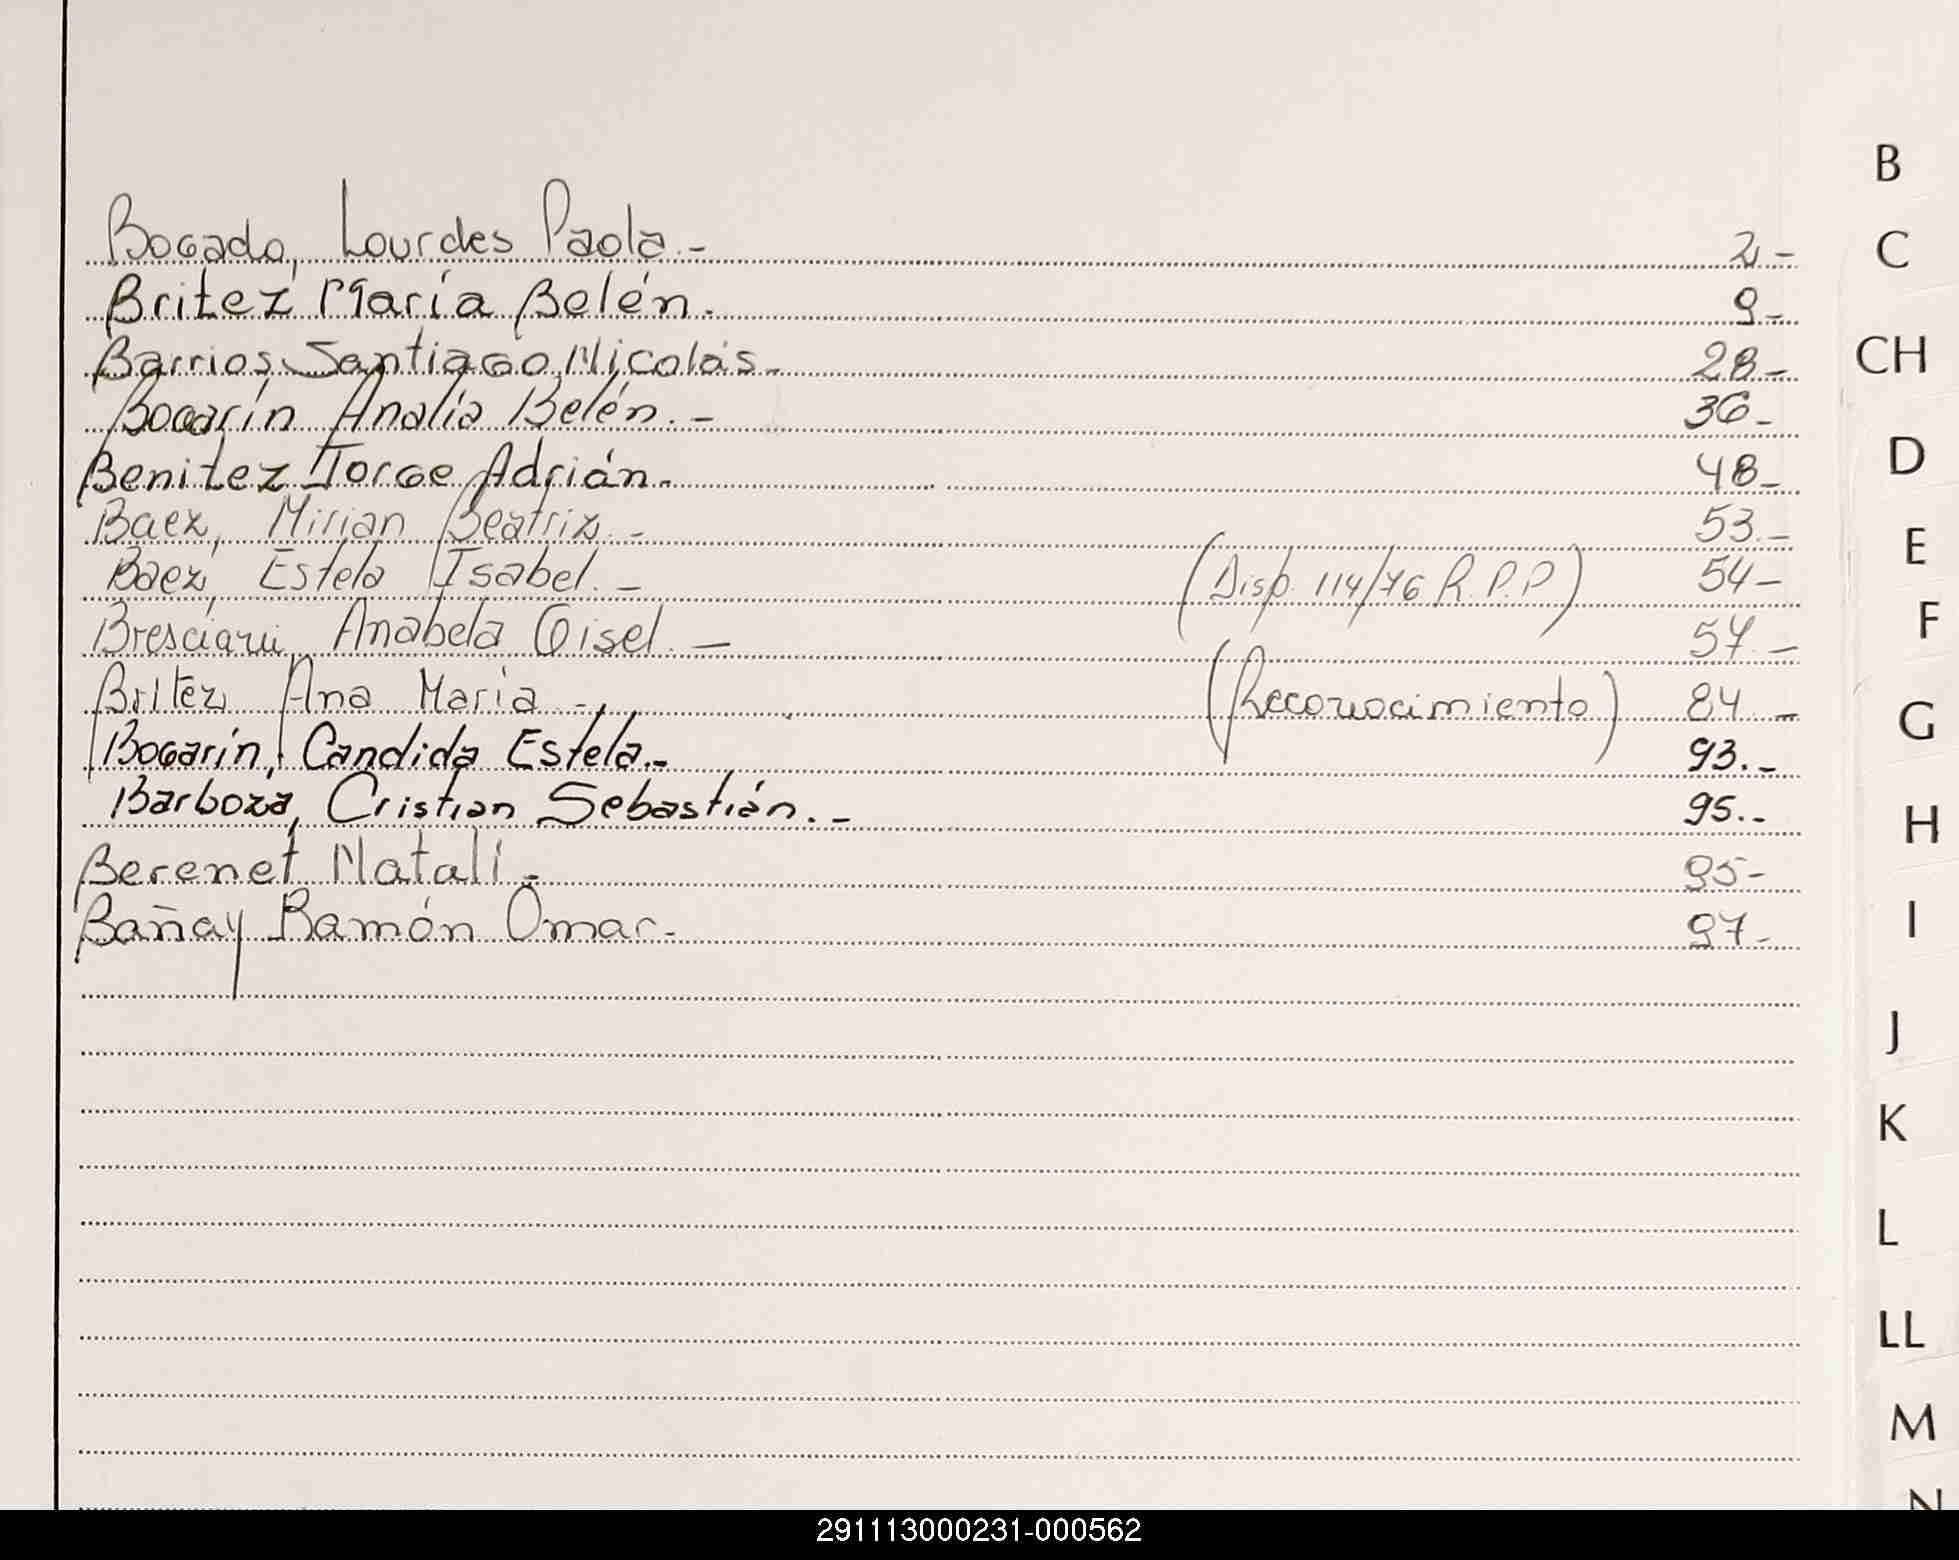 Bogado, Lourdes Paola.- 2-
Britez María Belén. 9-
Barrios Santiago Nicolás- 28-
Bogarín Analía Belén.- 36-
Benitez Jorge Adrián. 48-
Baez, Mirian Beatriz.- 53.-
Baez, Estela Isabel.- (Disp. 114/76 R.P.P) 54-
Bresciani, Anabela Gisel.- 57.-
Britez, Ana Maria.- (Reconocimiento) 84.-
Bogarín, Candida Estela.- 93.-
Barboza, Cristian Sebastián.- 95.-
Berenet Natalí- 95-
Bañay Ramón Omar- 97-
B
C
CH
D
E
F
G
H
I
J
K
L
LL
M
N
291113000231-000562